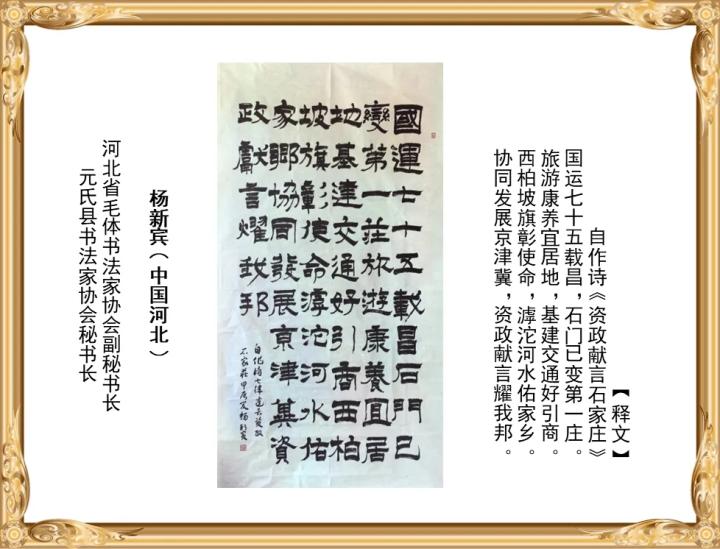 【释文】
自作诗《资政献言石家庄》
国运七十五载昌，石门已变第一庄。
旅游康养宜居地，基建交通好引商。
西柏坡旗彰使命，滹沱河水佑家乡。
协同发展京津冀，资政献言耀我邦。
國運七十五載昌石門已
變第一莊旅遊康養宜居
地基建交通好引商西柏
坡旗彰使命滹沱河水佑
家鄉協同發展京津冀資
政獻言耀我邦
自作詩七律
石家莊甲辰夏楊新賓
杨新宾（中国河北）
河北省毛体书法家协会副秘书长
元氏县书法家协会秘书长